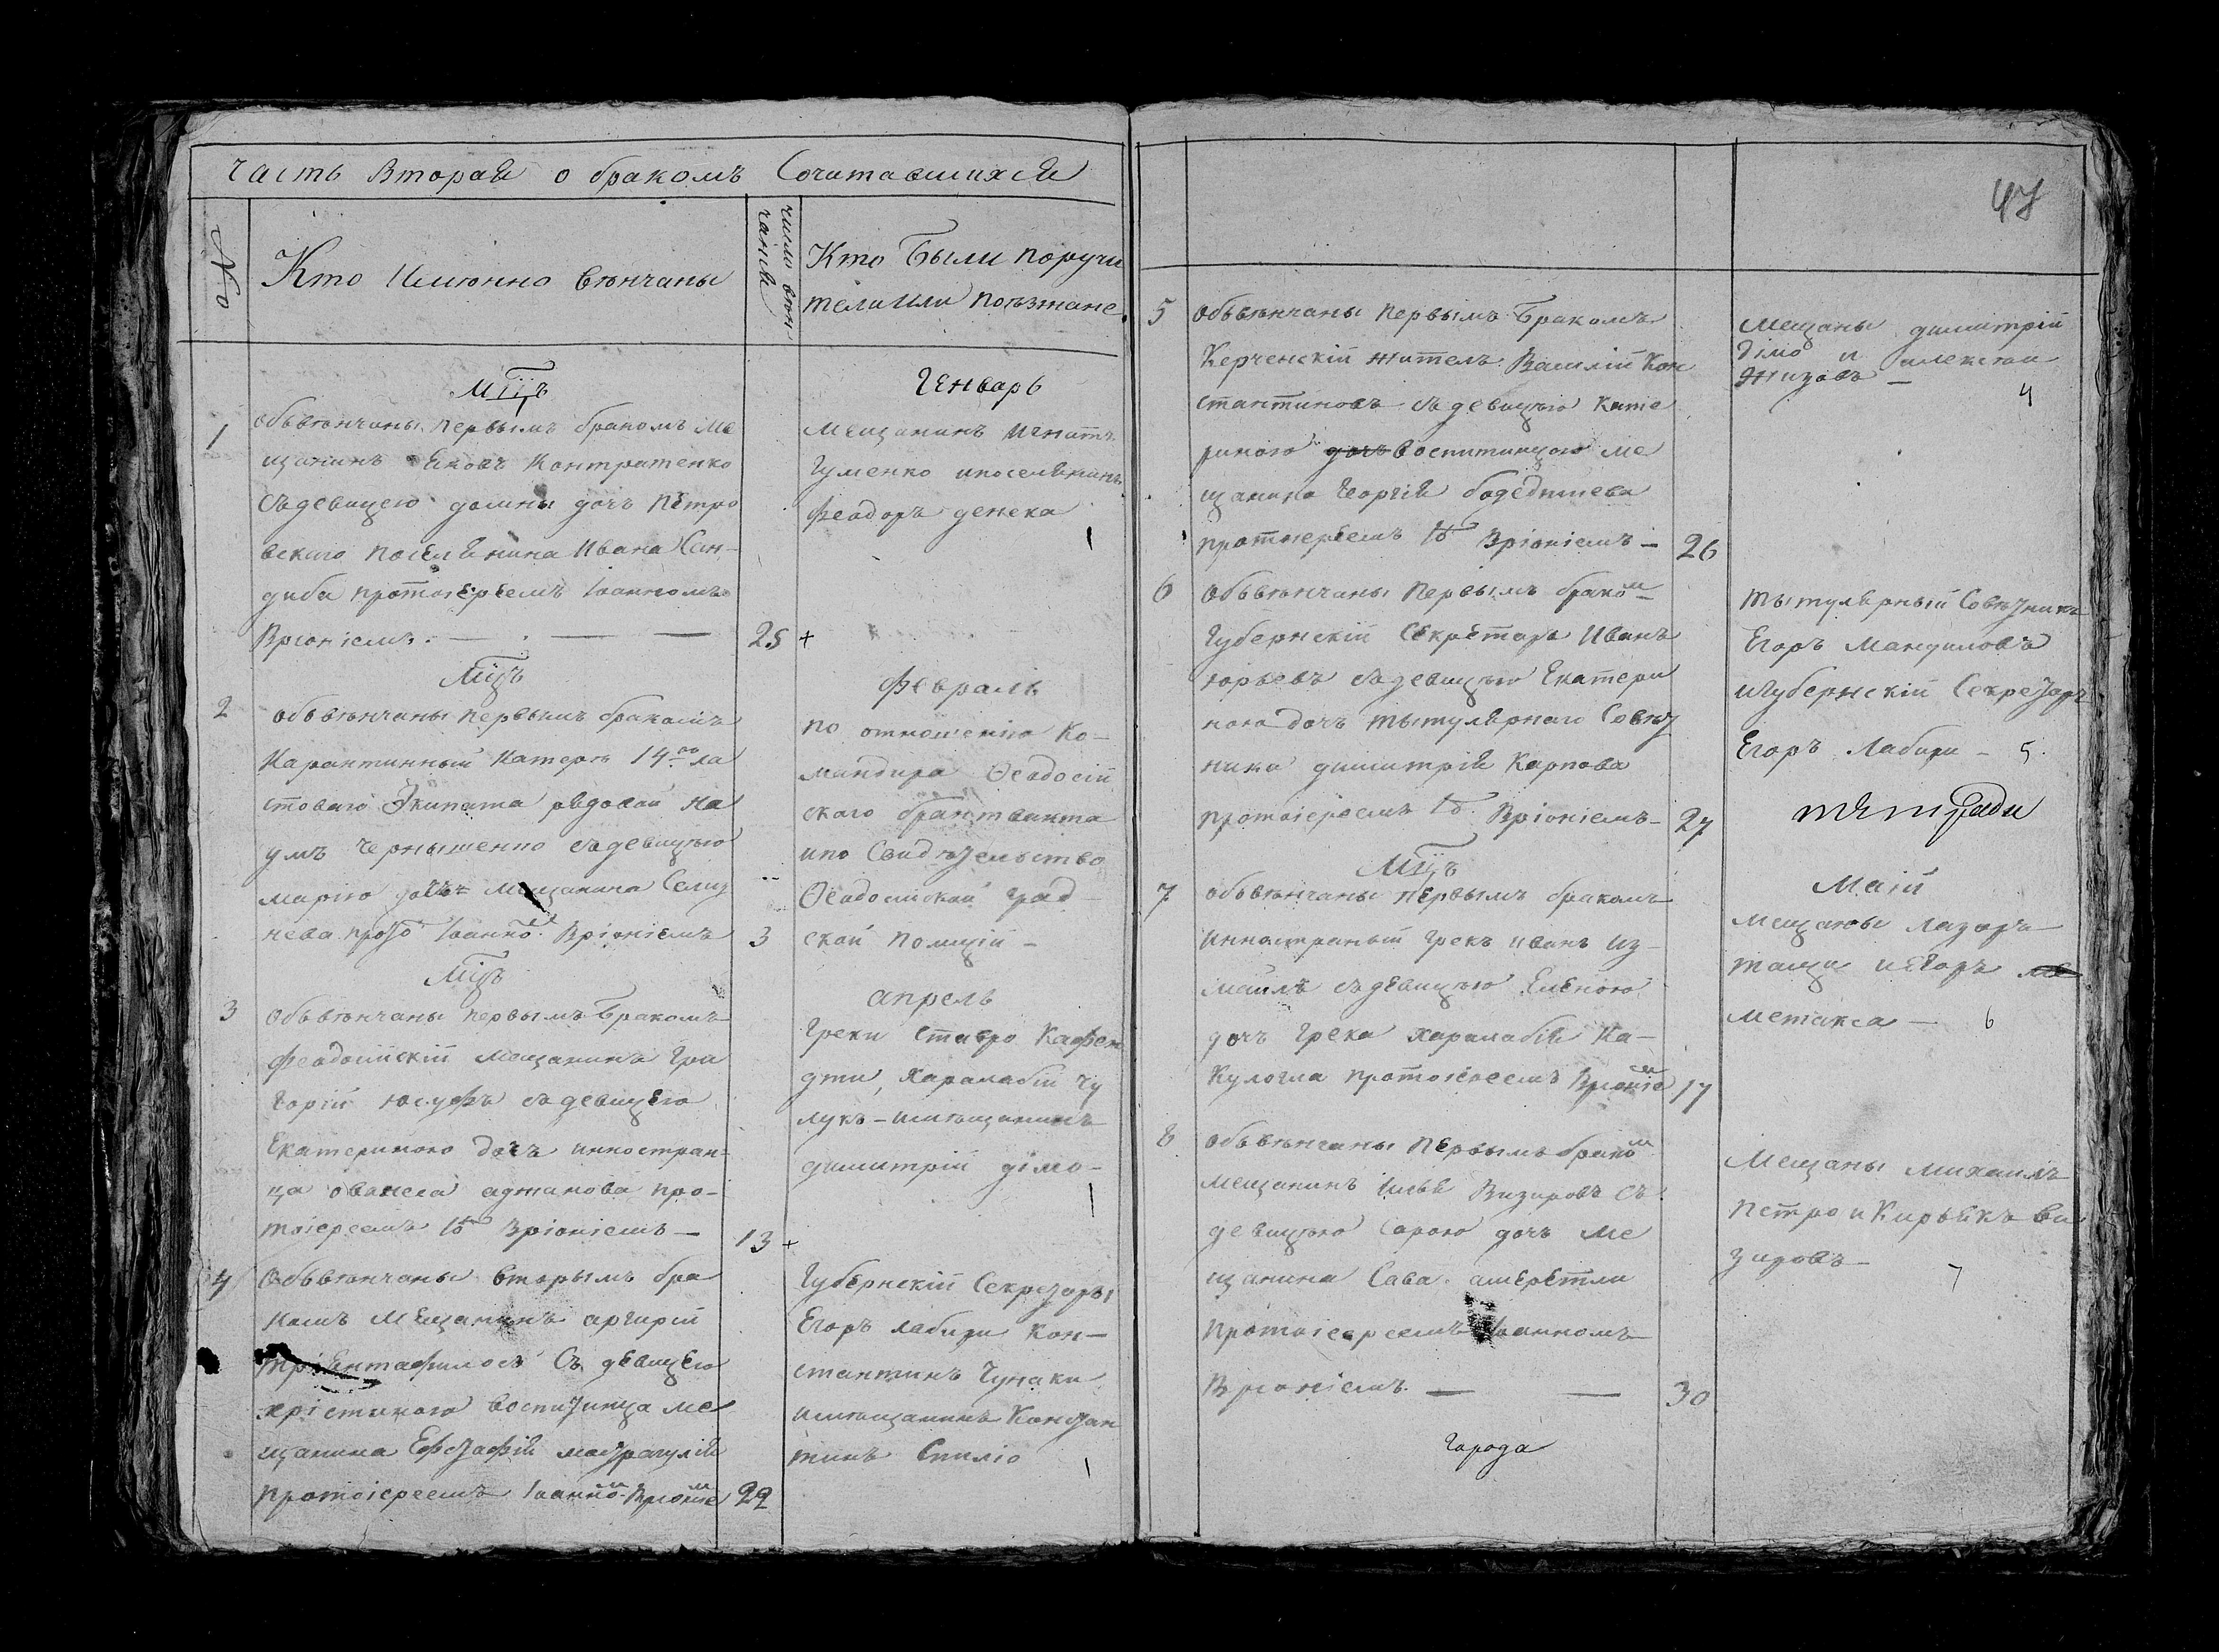 часть Вторая о бракомъ Сочитавшихся
№
Кто Имюнно вѣнчаны
число вѣн
чанія
Кто Были поручи
тели или поѣзжане
Мцъ
Генварь
1
Обьвѣнчаны первымъ бракомъ ме
щанинъ Яковъ Контратенко
съ девицею домны дочъ Петро
вскаго поселянина Ивана Сан-
диба протоіереемъ Іоанномъ
Вріоніемъ. — . — —
25 +
Мещанинъ Игнатъ
Гуменко и поселянинъ
Феодоръ денека
1
Мцъ
Февраль
2
Обьвѣнчаны первымъ бракомъ
Карантинный Катеръ 14го ла
стоваго Экипажа рядовой На
умъ Чернышенко съ девицъю
марію дочъ мещанина Селиз
нева прото Іоанно. Вріоніемъ
3
по отношенію Ко-
мандира Ѳеодосій
скаго брантвахта
и по Свидѣтельство
Ѳеодосійской град
ской полицій -
Мцъ
апрель
3
Обьвѣнчаны первымъ Бракомъ
Феодосійскій мещанинъ Гри
горій Юсуфъ съ девицею
Екатериною дочъ инностран-
ца ованеса аджанова про-
тоіереемъ Іо Вріоніемъ —
13 +
Греки Ставро Кафе
дти, Харалабій Чу
лукъ - и мѣщанинъ
димитрій дімо-
1
4
Обьвѣнчаны вторымъ бра
комъ мещанинъ аргирій
тріентафилосъ Съ девицею
христиною воспитинца ме
щанина Ефстафій
протоіереемъ Іоанном Вріоніем
22
Губернскій Секретаръ
Егоръ лабири Кон-
стантинъ Гунаки
и мѣщанинъ Констан
тинъ Спиліо
1
47
5
Обьвѣнчаны первымъ Бракомъ
Керченскій житель Василій Кон
стантиновъ съ девицъю Кате
риною дочъ воспитинцою ме
щанина Георгія
протоіереемъ Іо Вріоніемъ —
26
Мещаны димитрій
дімо и алексей
жизовъ —
4
6
Обьвѣнчаны первымъ браком
Губернскій Секретаръ Иванъ
юрьевъ съ девицъю Екатери
ною дочъ тытулярнаго Совет
ника димитрія Карпова
протоіереемъ Іо Вріоніемъ —
27
тытулярный Советникъ
Егоръ Мандиловъ
и губернскій Секретаръ
Егоръ Лабири - 5.
Мцъ
Маій
7
обьвѣнчаны первымъ бракомъ
инностраный грекъ иванъ Из-
маилъ съ девицъю Еленою
дочъ грека харалабія Ка-
кулогла протоіереемъ Вріоніем
17
мещаны лазарь
тащи и Егоръ ме
метакса — 6
8
обьвѣнчаны первымъ браком
мещанинъ Илья Визировъ съ
девицъю Сарою дочъ ме
щанина Сава. амеретли
протоіереемъ Іоанномъ
Вріоніемъ. — —
30
Мещаны михаилъ
петро и Кирьякъ ви
зировъ —
7
города